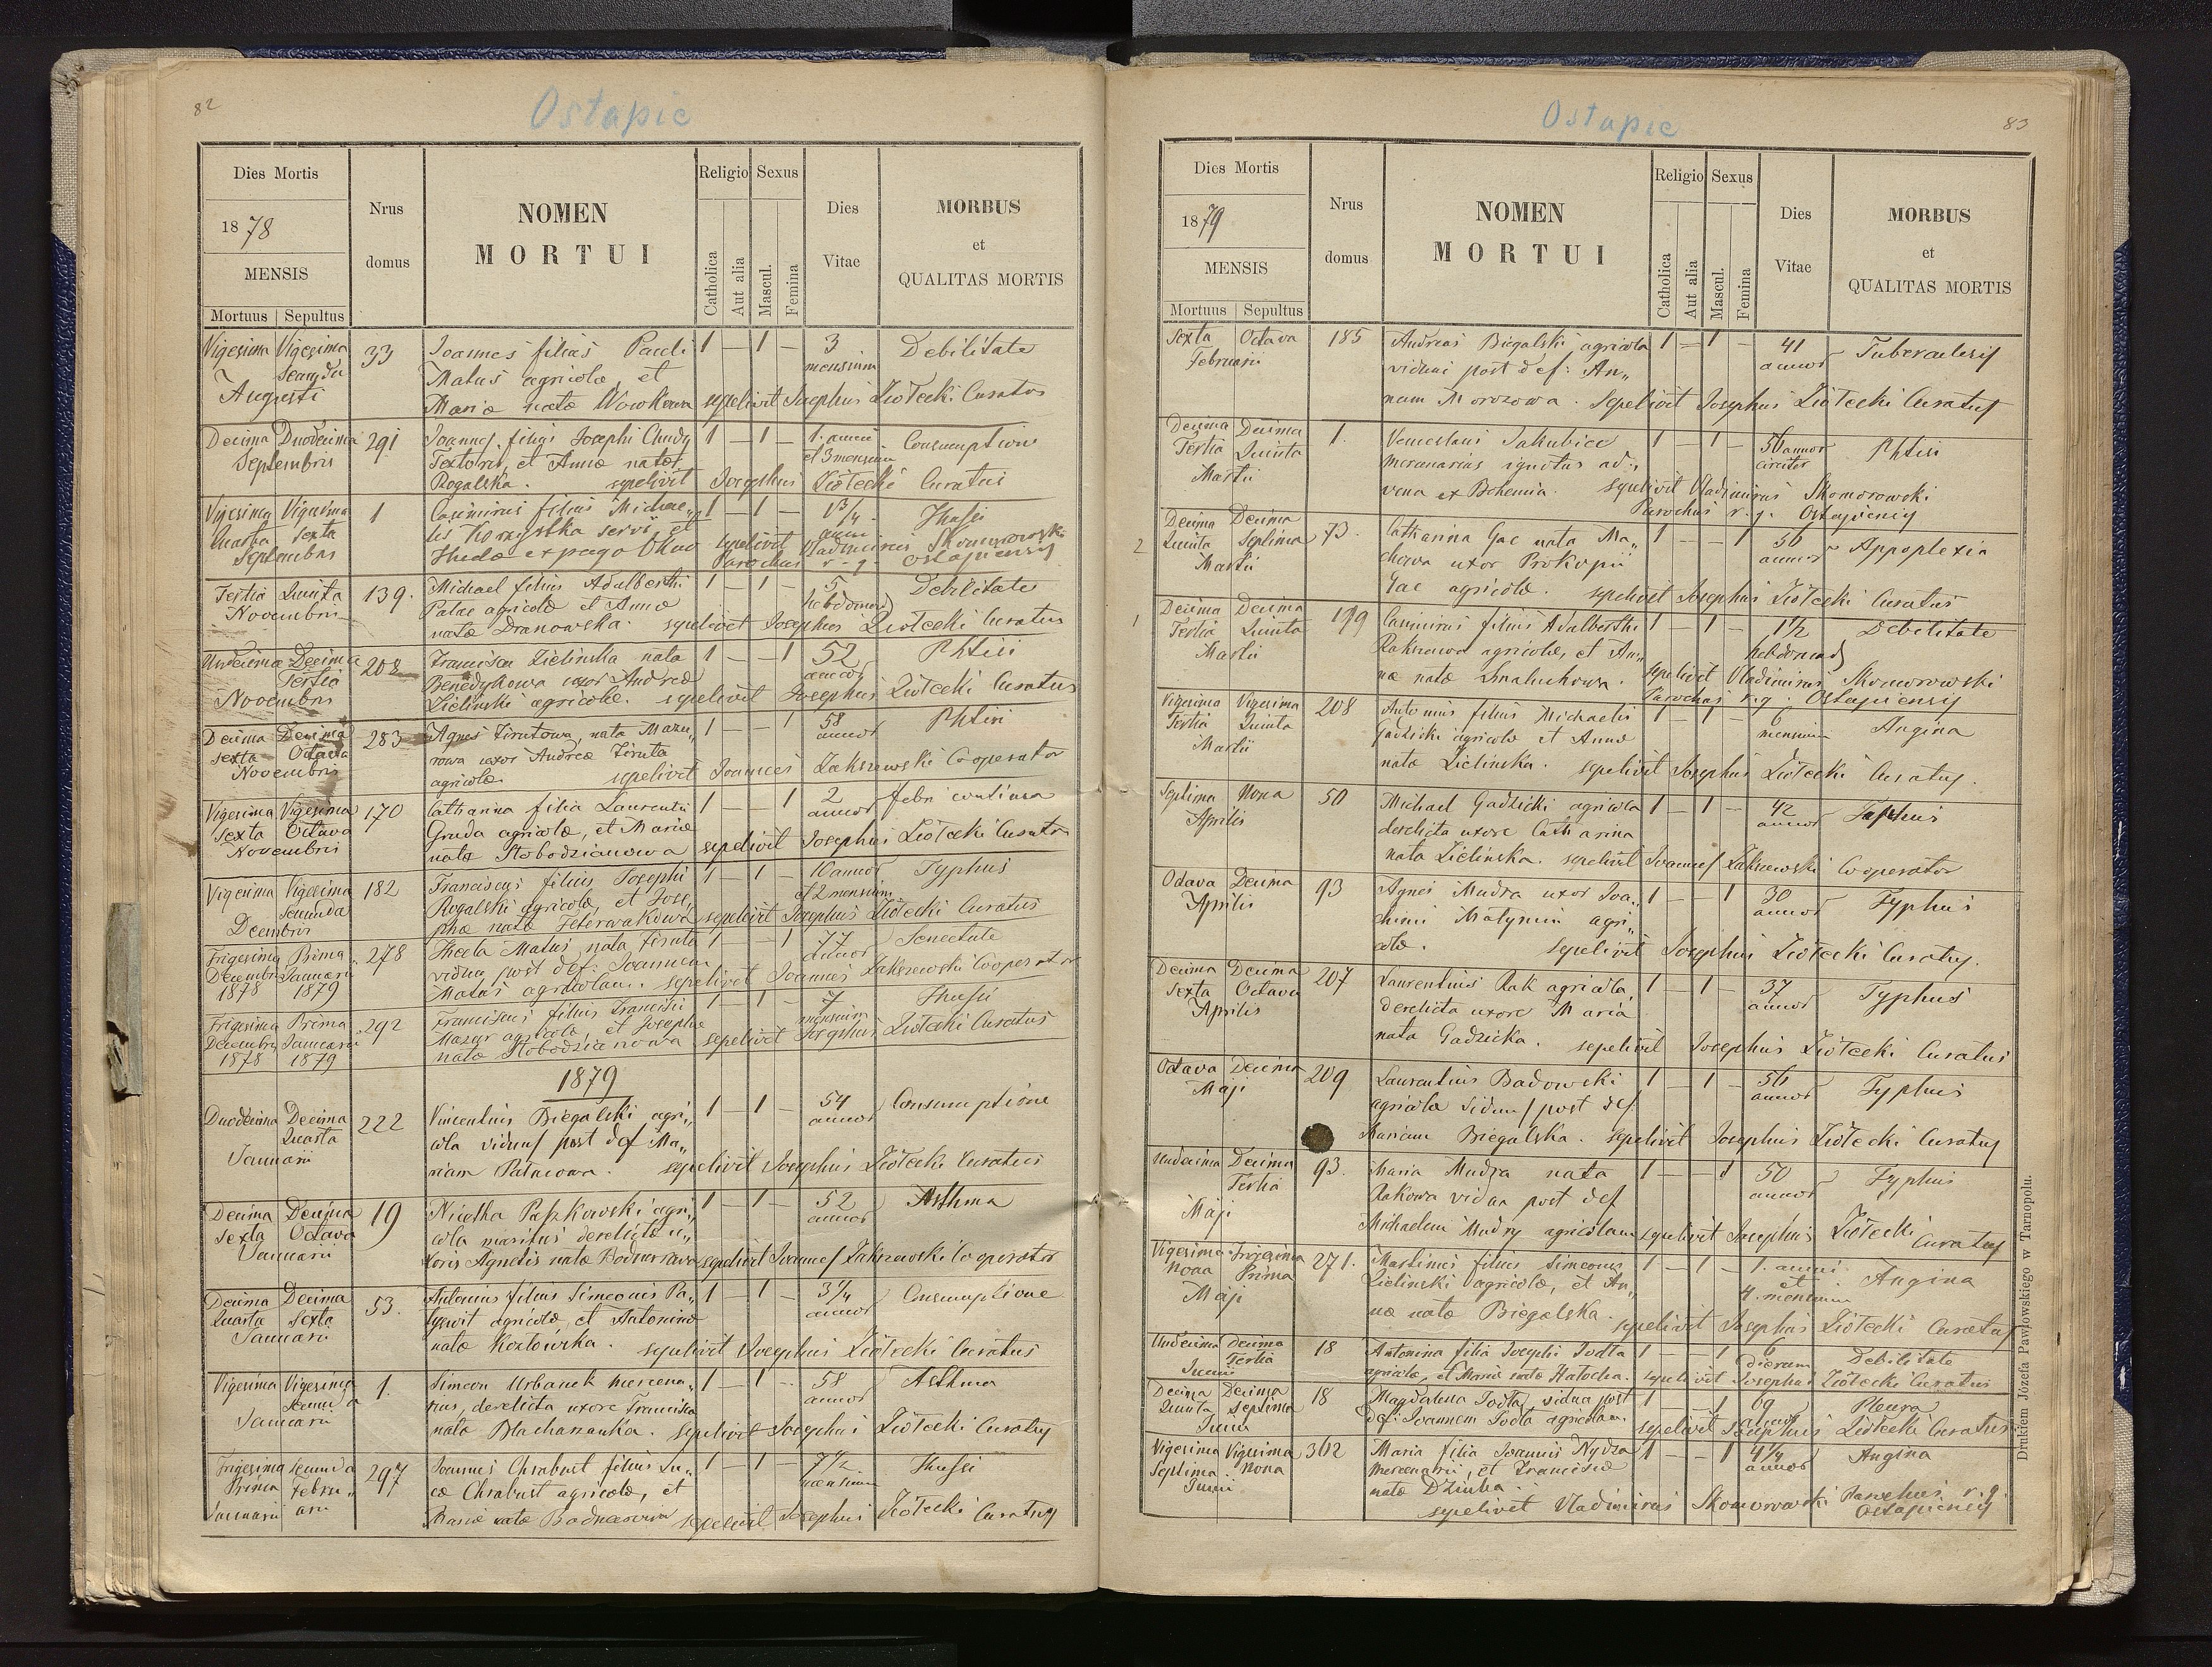 82
Ostapie
Dies Mortis
1878
MENSIS
Mortuus Sepultus
Nrus domus
NOMEN
MORTUI
Religio Sexus
Catholica
Aut alia
Mascul.
Femina
Dies
Vitae
MORBUS
et
QUALITAS MORTIS
Vigesima Vigesima 33 Joannes filius Pauli 1 – 1 – 3 Debilitate
Secunda Matus agricolæ, et mensium
Augusti Mariæ natæ Wowkowa sepelivit Josephus Ziółecki Curatus
Decima Duodecima 291 Joannes filius Josephi Chudy 1 – 1 – 1. anni Consumptione
Septembris Textoris, et Annæ natæ et 3 mensium
Rogalska. sepelivit Josephus Ziółecki Curatus
Vigesima Vigesima 1 Casimirus filius Michae„ 1 – 1 – 1 3/4 Thussi
Quarta Sexta lis servi, et anni
Septembris Theclæ ex pago sepelivit Vladimirus Skomorowski
Parochus r. g. Ostapiensis
Tertia Quinta 139. Michael filius Adalberti 1 – 1 – 5 Debilitate
Novembris Palac agricolæ et Annæ hebdomad
natæ Dranowska. sepelivit Josephus Ziółecki Curatus
Undecima Decima 208 Francisca Zielinska nata 1 – – 1 52 Phtisi
Tertia Benedykowa uxor Andreæ annor
Novembris Zielinski agricolæ. sepelivit Josephus Ziółecki Curatus
Decima Decima 283 Agnes Zirutowa, nata Mazu„ 1 – – 1 58 Phtisi
Sexta Octava rowa uxor Andreæ Ziruta annor
Novembris agricolæ. sepelivit Joannes Zakrzewski Cooperator
Vigesima Vigesima 170 Catharina filia Laurentii 1 – – 1 2 febri continua
Sexta Octava Gruda agricolæ, et Mariæ annor
Novembris natæ Słobodzianowa sepelivit Josephus Ziółecki Curatus
Vigesima Vigesima 182 Franciscus filius Josephi 1 – 1 – 10 annor Typhus
Secunda Rogalski agricolæ, et Jose„ et 2 mensium
Decembris phæ natæ sepelivit Josephus Ziółecki Curatus
Trigesima Prima 278 Thecla Matus, nata Ziruta 1 – – 1 77 Senectute
Decembris Januarii vidua post def: Joannem annor
1878 1879 Matus agricolam. sepelivit Joannes Zakrzewski Cooperator
Trigesima Prima 292 Franciscus filius Francisci 1 – 1 – 7 Thussi
Decembris Januarii Mazur agricolæ, et Josephæ mensium
1878 1879 natæ Słobodzianowa sepelivit Josephus Ziółecki Curatus
1879
Duodecima Decima 222 Vincentius Biegalski agri„ 1 – 1 – 54 Consumptione
Quarta cola viduus post def Ma„ annor
Januarii riam Palacowa. sepelivit Josephus Ziółecki Curatus
Decima Decima 19 Nicetha Paszkowski agri„ 1 – 1 – 52 Asthma
Sexta Octava cola maritus derelictæ u„ annor
Januarii xoris Agnetis natæ Bodnarowa sepelivit Joannes Zakrzewski Cooperator
Decima Decima 53. Antonius filius Simeonis Pa„ 1 – 1 – 3 1/4 Consumptione
Quarta Sexta agricolæ, et Antoninæ annor
Januarii natæ Kozłowska. sepelivit Josephus Ziółecki Curatus
Vigesima Vigesima 1. Simeon Urbanek mercena„ 1 – 1 – 58 Asthma
Secunda rius, derelicta uxore Francisca annor
Januarii nata sepelivit Josephus Ziółecki Curatus
Trigesima Secunda 297 Joannes Chrabust filius Lu„ 1 – 1 – 7 1/2 Thussi
Prima Febru„ cæ Chrabust agricolæ, et mensium
Januarii arii Mariæ natæ Bodnarowa sepelivit Josephus Ziółecki Curatus
83
Ostapie
Dies Mortis
1879
MENSIS
Mortuus Sepultus
Nrus domus
NOMEN
MORTUI
Religio Sexus
Catholica
Aut alia
Mascul.
Femina
Dies
Vitae
MORBUS
et
QUALITAS MORTIS
Sexta Octava 185 Andreas Biegalski agricola 1 – 1 – 41 Tuberculosis
Februarii viduus post def: An„ annor
nam Morozowa. Sepelivit Josephus Ziółecki Curatus
Decima Decima 1. Venceslaus Jakubice 1 – 1 – 56 annor Phtisi
Tertia Quinta mercenarius ignotus ad„ circiter
Martii vena ex Bohemia. sepelivit Vladimirus Skomorowski
Parochus r. g. Ostapiensis
2 Decima Decima 73. Catharina Gac nata Ma„ 1 – – 1 50 Appoplexia
Quinta Septima chowa uxor Prokopii annor
Martii Gac agricolæ. sepelivit Josephus Ziółecki Curatus
1 Decima Decima 199 Casimirus filius Adalberthi 1 – 1 – 1 1/2 Debilitate
Tertia Quinta agricolæ, et An„ hebdomad
Martii næ natæ sepelivit Vladimirus Skomorowski
Parochus r. g. Ostapiensis
Vigesima Vigesima 208 Antonius filius Michaelis 1 – 1 – 6 Angina
Tertia Quinta Gadzicki agricolæ et Annæ mensium
Martii natæ Zielinska. sepelivit Josephus Ziółecki Curatus.
Septima Nona 50 Michael Gadzicki agricola 1 – 1 – 42 Typhus
Aprilis derelicta uxore Catharina annor
nata Zielinska. sepelivit Joannes Zakrzewski Cooperator
Octava Decima 93 Agnes Mudra uxor Joa„ 1 – – 1 30 Typhus
Aprilis chimi Matynin agri„ annor
colæ. sepelivit Josephus Ziółecki Curatus.
Decima Decima 207 Laurentius Rak agricola, 1 – 1 – 37 Typhus
Sexta Octava derelicta uxore Maria annor
Aprilis nata Gadzicka. sepelivit Josephus Ziółecki Curatus
Octava Decima 209 Laurentius Badowski 1 – 1 – 56 Typhus
Maji agricola viduus post def annor
Mariam Biegalska. sepelivit Josephus Ziółecki Curatus
Undecima Decima 93. Maria Mudra nata 1 – – 1 50 Typhus
Tertia Rakowa vidua post def annor
Maji Michaelem Mudry agricolam sepelivit Josephus Ziółecki Curatus
Vigesima Trigesima 271. Martinus filius Simeonis 1 – 1 – 1. anni Angina
Nona Prima Zielinski agricolæ, et An„ et
Maji næ natæ Biegalska. 4. mensium
sepelivit Josephus Ziółecki Curatus
Undecima Decima 18 Antonina filia Josephi Jodła 1 – – 1 6 Debilitate
Tertia agricolæ, et Mariæ natæ dierum
Junii sepelivit Josephus Ziółecki Curatus
Decima Decima 18 Magdalena Jodła, vidua post 1 – – 1 69 Pleura
Quinta Septima def: Joannem Jodła agricolam. annor
Junii sepelivit Josephus Ziółecki Curatus
Vigesima Vigesima 302 Maria filia Joannis Nydza 1 – – 1 4 1/4 Angina
Septima Nona mercenarii, et Franciscæ annor
Junii natæ Dziuba.
sepelivit Vladimirus Skomorowski Parochus r. g.
Ostapiensis
Drukiem Józefa Pawłowskiego w Tarnopolu.